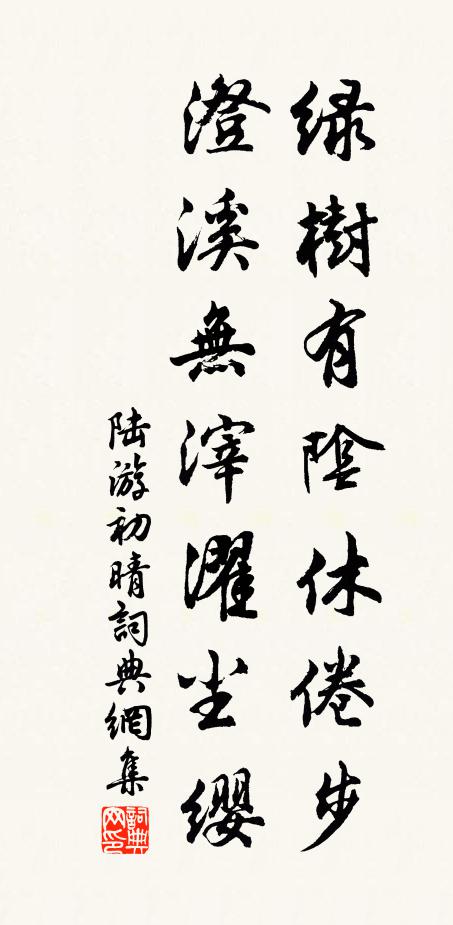 綠樹有陰休倦步
澄溪無滓濯塵纓
陆游初晴詞典網集
詞典网印